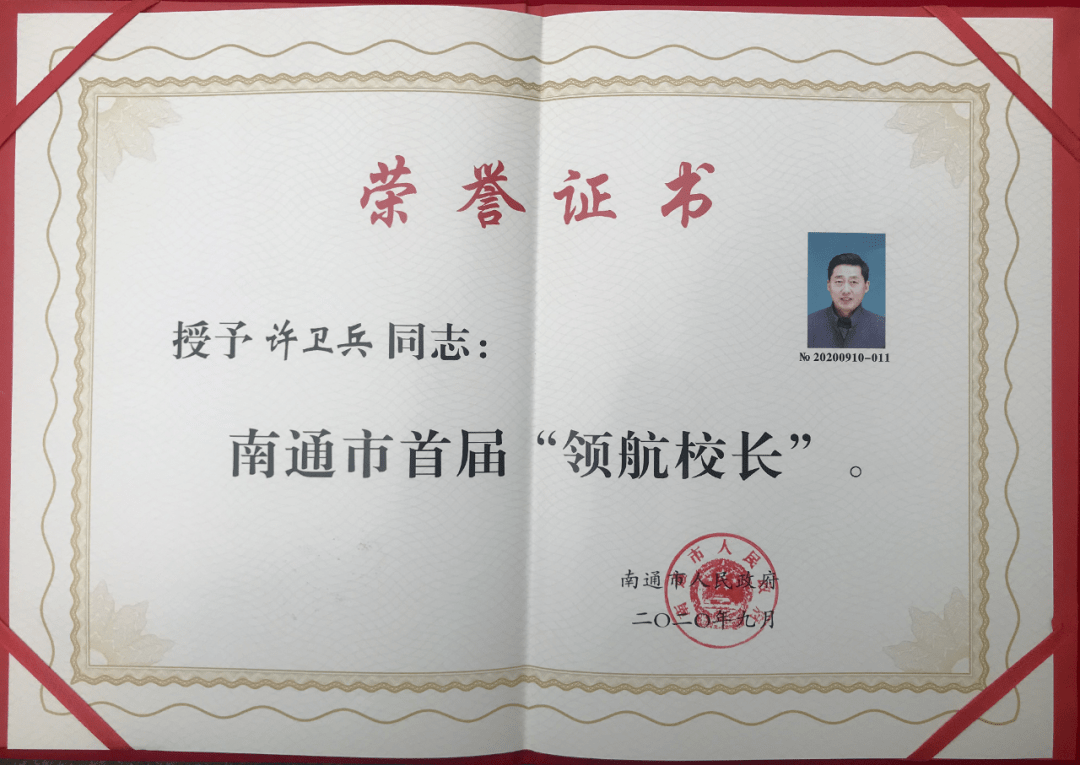 荣誉证书
№ 20200910-011
授予 许卫兵 同志：
南通市首届“领航校长”。
南通市人民政府
二〇二〇年九月